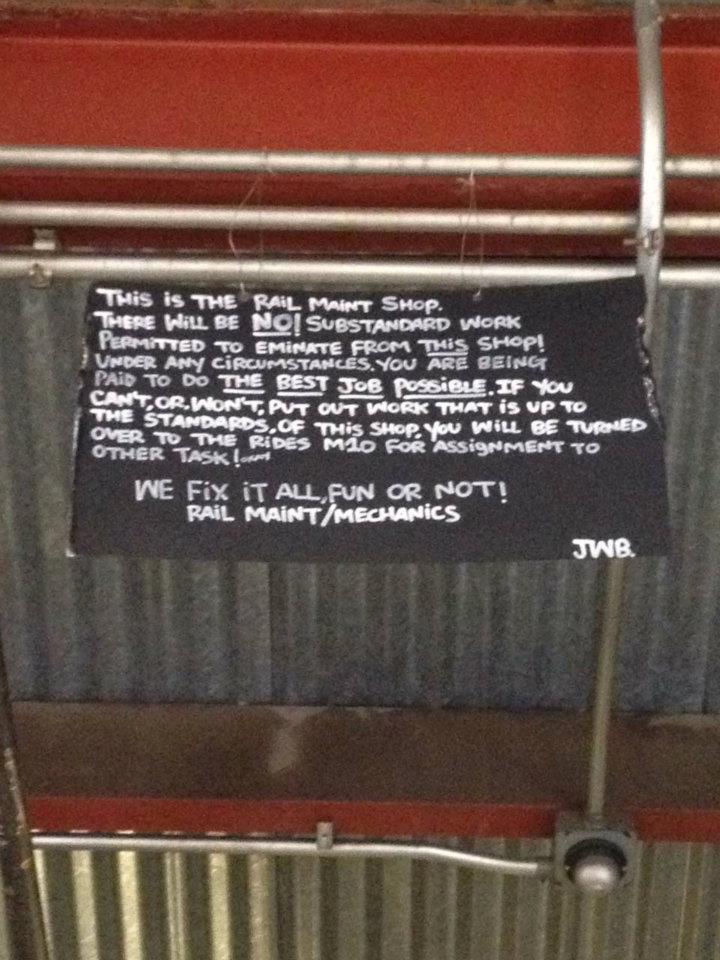 THIS IS THE RAIL MAINT SHOP.
THERE WILL BE NO! SUBSTANDARD WORK
PERMITTED TO EMINATE FROM THIS SHOP!
UNDER ANY CIRCUMSTANCES. YOU ARE BEING
PAID TO DO THE BEST JOB POSSIBLE. IF YOU
CAN'T, OR, WON'T, PUT OUT WORK THAT IS UP TO
THE STANDARDS, OF THIS SHOP, YOU WILL BE TURNED
OVER TO THE RIDES M10 FOR ASSIGNMENT TO
OTHER TASK!
WE FIX IT ALL, FUN OR NOT!
RAIL MAINT/MECHANICS
JWB.